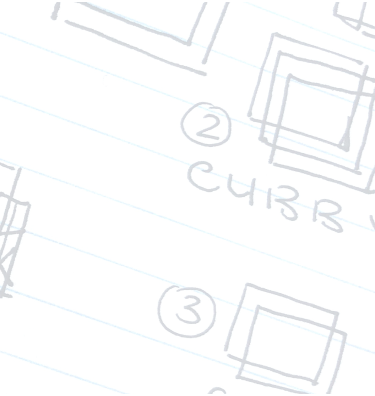 ②
CUBB
③